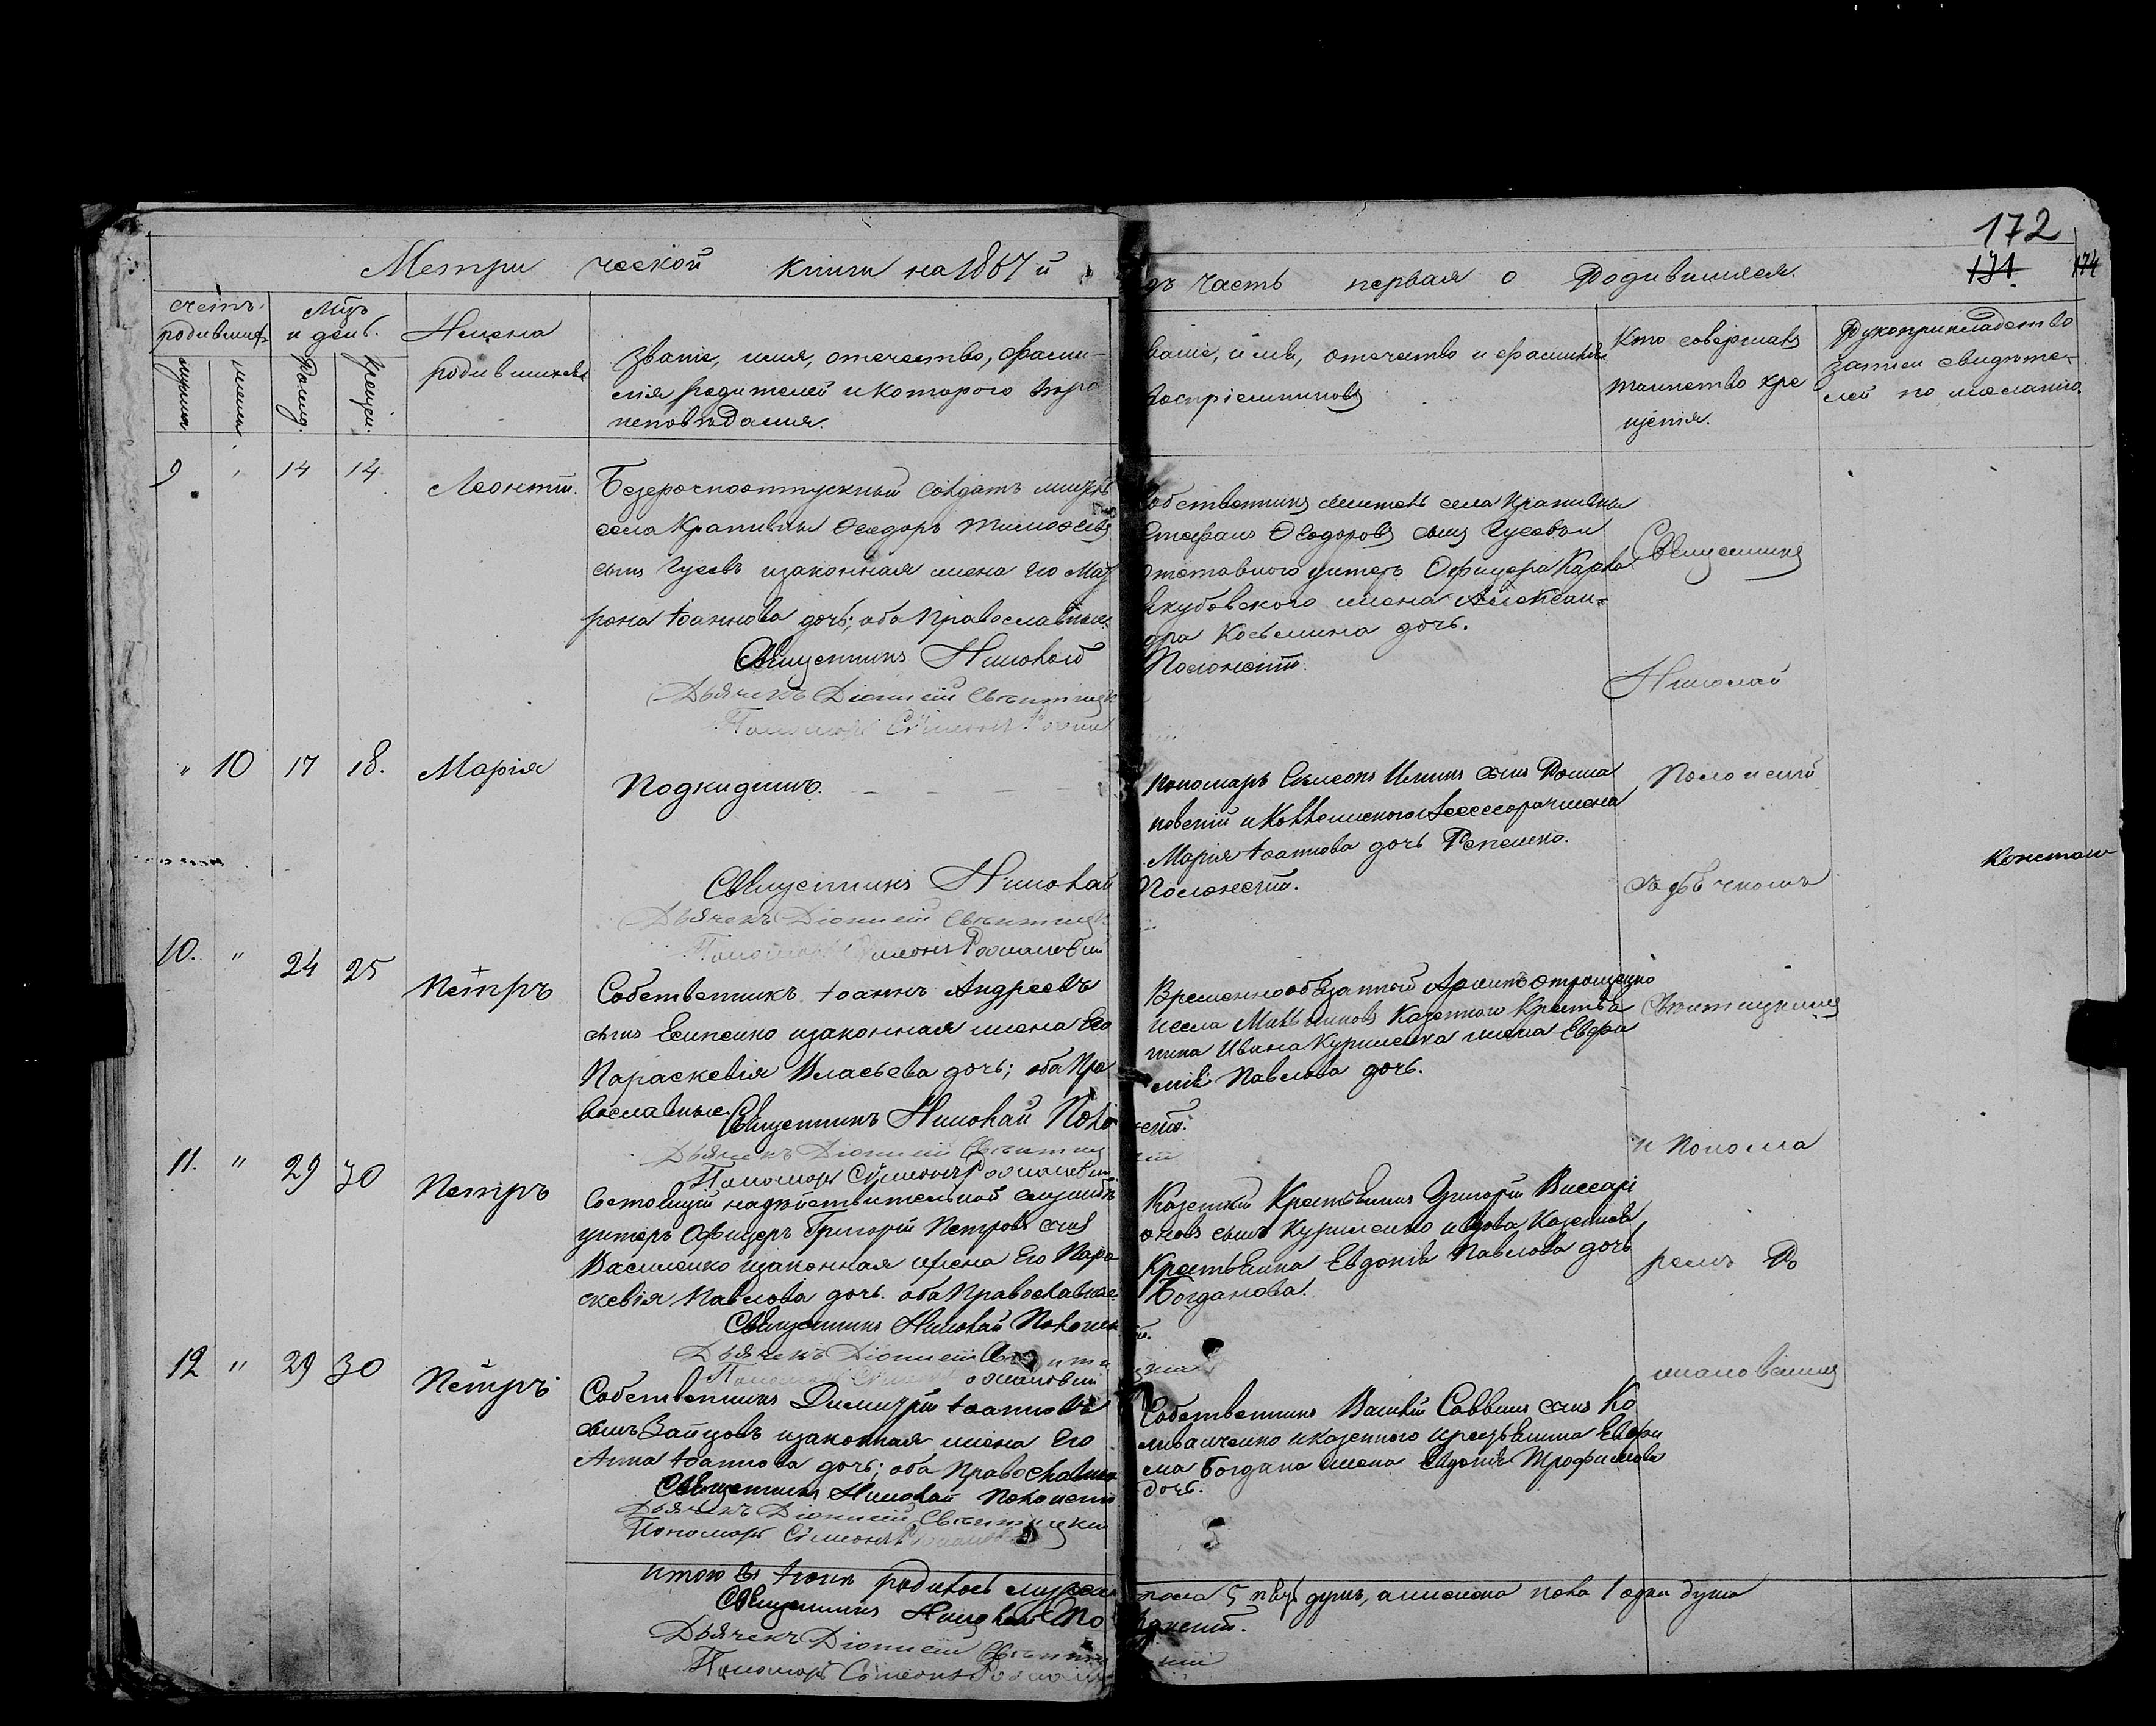 172
171.
174
Метри ческой книги на 1867 й
часть первая о Родившихся.
счетъ родившихъ
Мцъ и день.
Имена родившихся
Званіе, имя, отечество, фами-
лія родителей и которого
исповѣданія.
вание, имя, отечество и фамилія
воспріемниковъ
Кто совершалъ
таинство кре
щенія.
Рукоприкладство
записи свидѣте-
лей по желанію.
мужеск
женск
Рожд.
Крещен.
9 " 14 14
Леонтій.
Безсрочноотпускный Солдатъ
села Крапивны Ѳеодоръ Тимоѳеевъ
сынъ Гусевъ изаконная жена его Мат
рона Іоаннова дочь; оба Православные.
Священникъ Николай
Дьячекъ Діонисій
Пономарь Сѵмеонъ
Собственникъ житель села Крапивны
Стефанъ Ѳеодоровъ сынъ Гусевъ и
Отставного унтеръ Офицера Карпа
Якубовского жена Алексан-
дра Косьмина дочь.
Полонскій.
Священникъ
Николай
" 10 17 18.
Марія
Подкидышъ.
Священникъ Николай
Дьячекъ Діонисій
Пономарь Сѵмеонъ Романовскій
Пономарь Сѵмеонъ Илiинъ сынъ Рома
новскій и Коллежского Ассессора жена
Марія Іоаннова дочь Репешко.
Полонскій.
Полонскій
съ дьячкомъ
Констан
10. " 24 25
Петръ
Собственникъ Іоаннъ Андреевъ
сынъ Есипенко изаконная жена Его
Параскевія Власьева дочь; оба Пра
вославные.
Священникъ Николай Поло
нскій.
Дьячекъ Діонисій
Пономарь Сѵмеонъ Романовскій
Временнообязанный
исела Мильниковъ Казенного Крестья
нина Ивана Куриленка жена Евфи
мія Павлова дочь.
и Понома
11. " 29 30
Петръ
Состоящій надѣйствительной службѣ
унтеръ Офицеръ Григорій Петровъ сынъ
Василенко изаконная жена Его Пара
скевія Павлова дочь. оба Православные.
Священникъ Николай Полонск
Дьячекъ Діонисій
Пономарь Сѵмеонъ Романовскій
Казенный Крестьянинъ Григорій Виссарі
оновъ сынъ Куриленко ивдова Казенная
Крестьянка Евдокія Павлова дочь
Богданова.
ремъ Ро
12 " 29 30
Петръ
Собственникъ Димитрій Іоанновъ
сынъ Зайцовъ изаконная жена Его
Анна Іоаннова дочь; оба Православные
Священникъ Николай Полонскій
Дьячекъ Діонисій
Пономарь Сѵмеонъ Романовскій
Собственникъ Василій Саввинъ сынъ Ко
иказенного крестьянина Евфи
ма Богдана жена Трофимова
дочь.
мановскимъ
Итого въ Іюнѣ родилось мужеск
пола 5 пять душъ, аженска пола 1 одна душа
Священникъ Николай По
лонскій.
Дьячекъ Діонисій
Пономарь Сѵмеонъ Романовскій